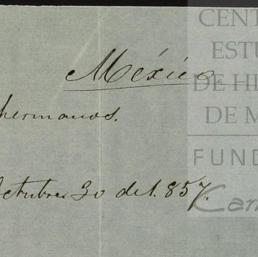 México
hermanos.
Octubre 30 de 1.857.
CENT
ESTU
DE HI
DE M
FUND
Car